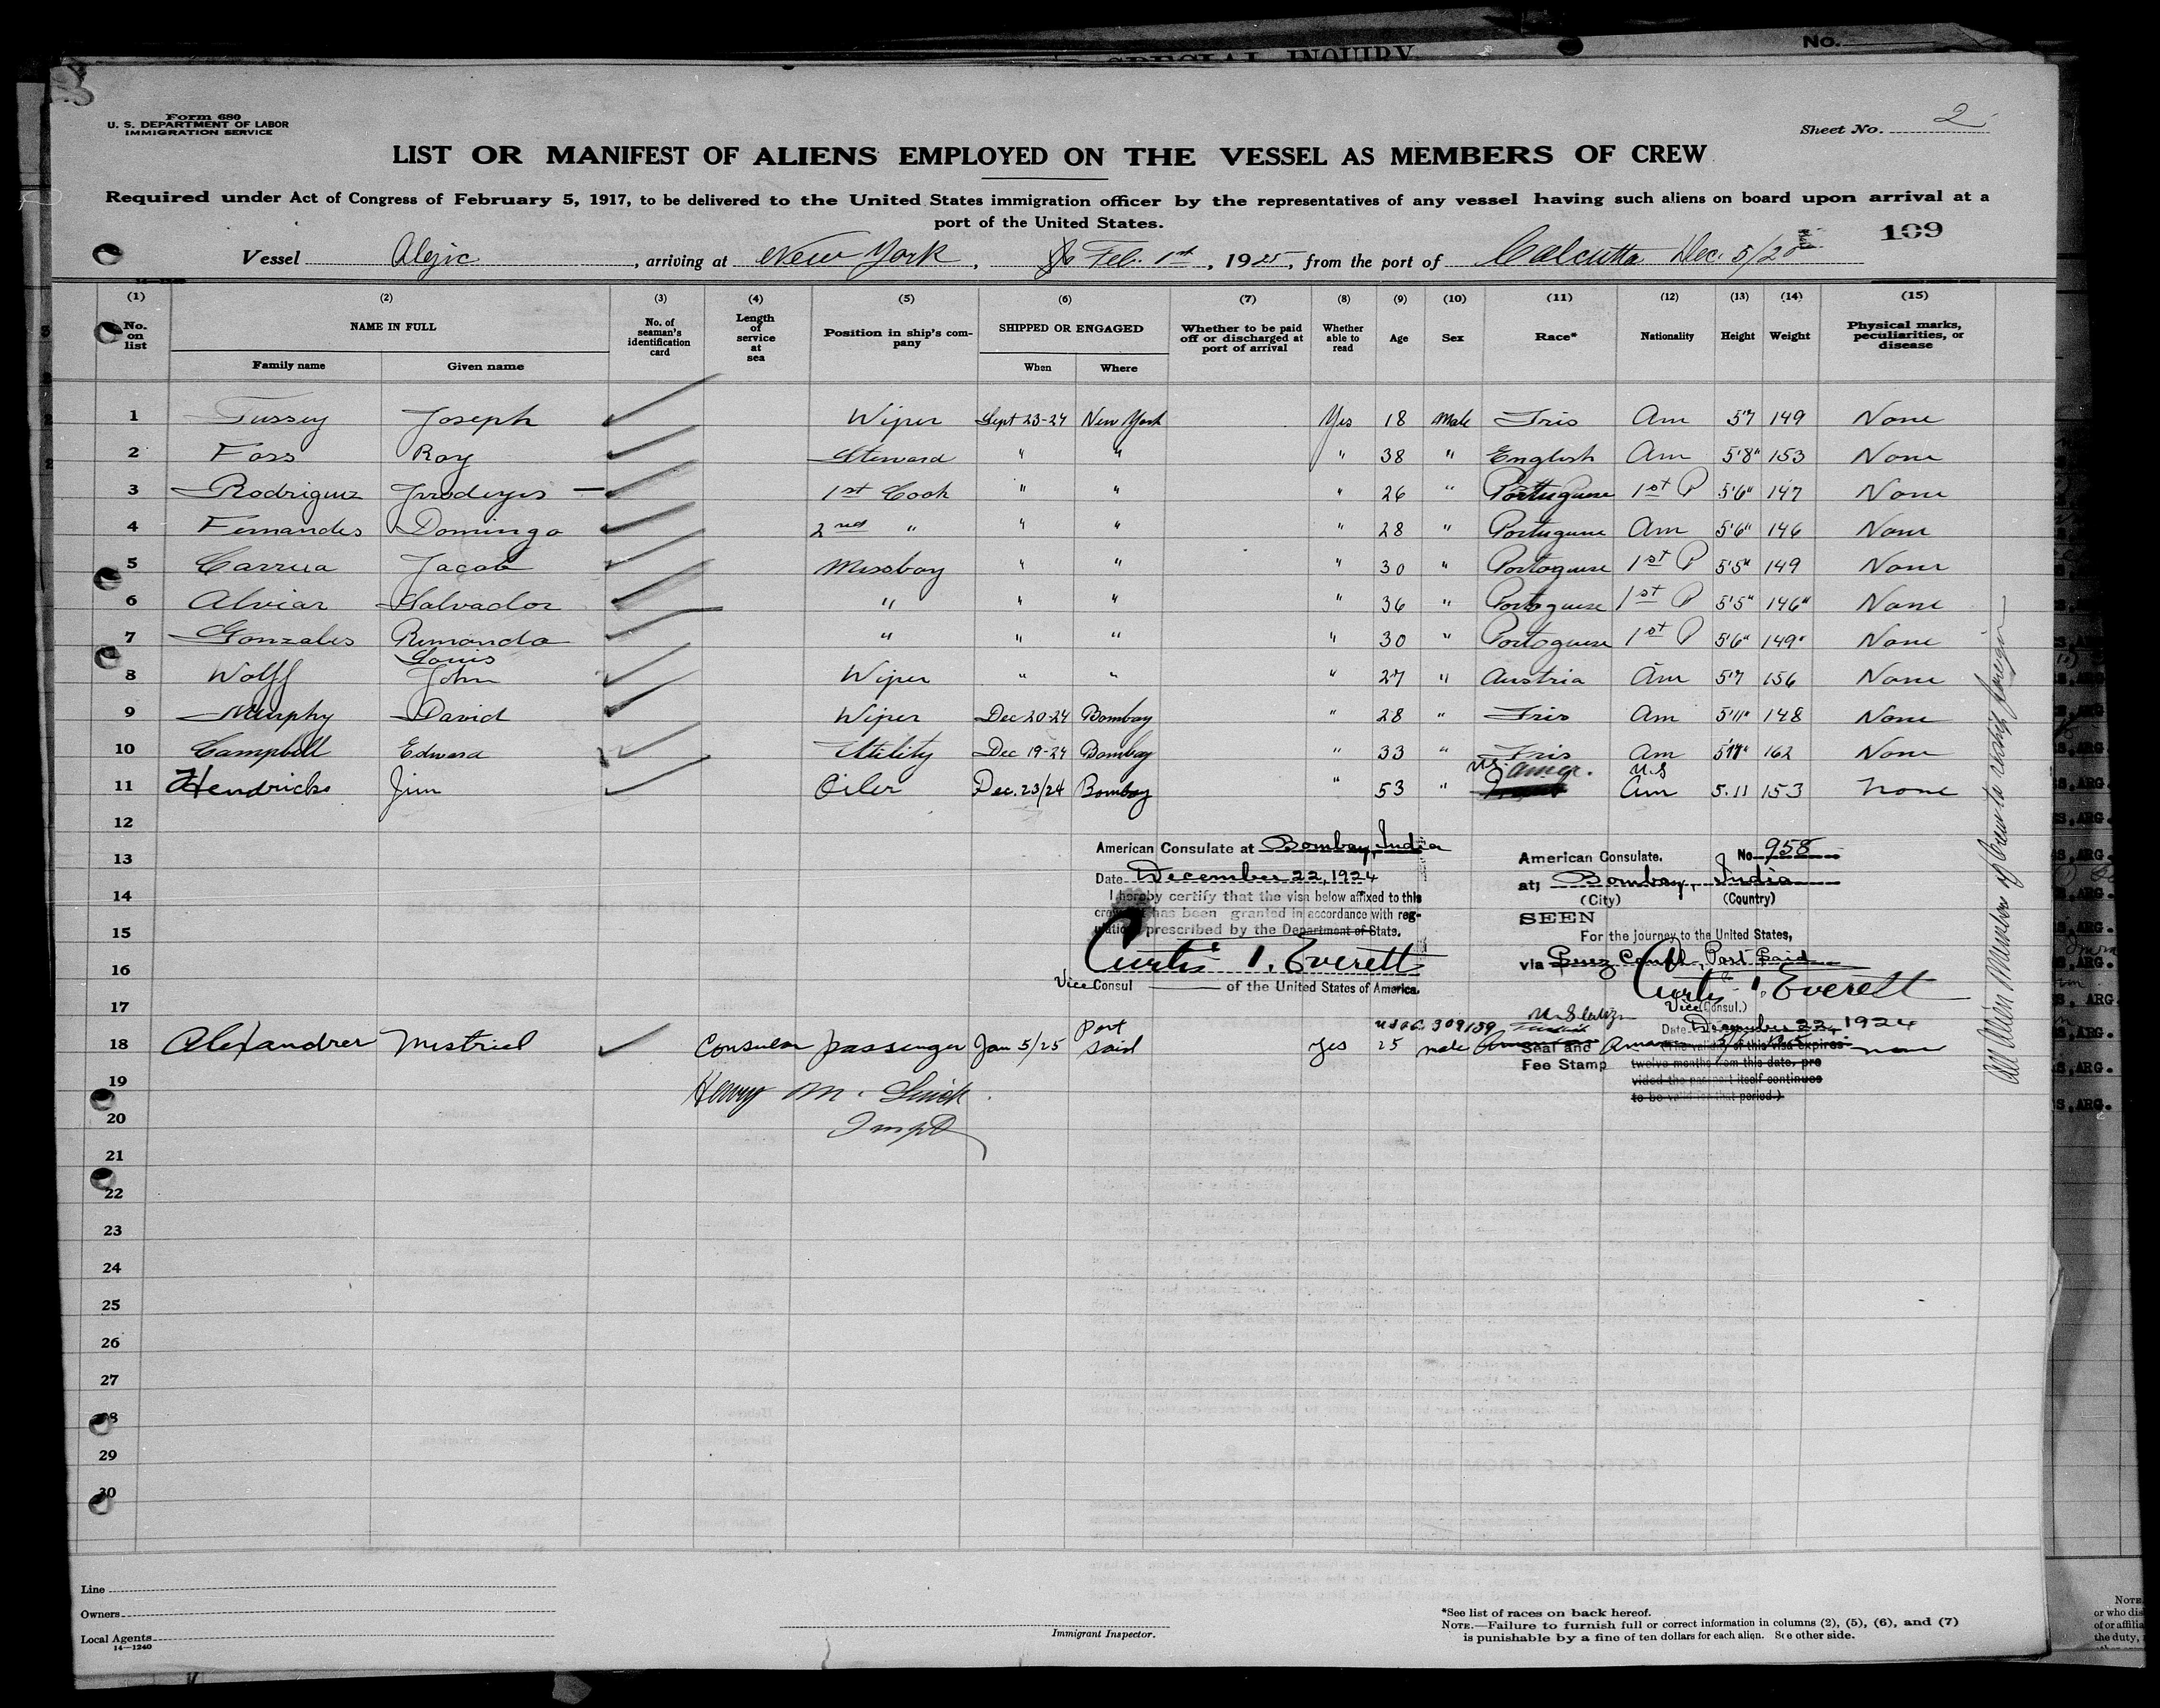 SPECIAL INQUIRY
No.
Form 680
U. S. DEPARTMENT OF LABOR
IMMIGRATION SERVICE
Sheet No. 2
LIST OR MANIFEST OF ALIENS EMPLOYED ON THE VESSEL AS MEMBERS OF CREW
Required under Act of Congress of February 5, 1917, to be delivered to the United States immigration officer by the representatives of any vessel having such aliens on board upon arrival at a
port of the United States.
109
Vessel Algic, arriving at New York, Feb. 1st, 1925, from the port of Calcutta Dec. 5/20
(1) (2) (3) (4) (5) (6) (7) (8) (9) (10) (11) (12) (13) (14) (15)
No. on list NAME IN FULL No. of seaman's identification card Length of service at sea Position in ship's company SHIPPED OR ENGAGED Whether to be paid off or discharged at port of arrival Whether able to read Age Sex Race* Nationality Height Weight Physical marks, peculiarities, or disease
Family name Given name When Where
1 Tussey Joseph Wiper Sept 23-24 New York Yes 18 Male Iris Am 5'7 149 None
2 Foss Roy Steward " " " 38 " English Am 5'8" 153 None
3 Rodriguez 1st Cook " " " 26 " Portuguese 1st P 5'6" 147 None
4 Fernandes Domingo 2nd " " " " 28 " Portuguese Am 5'6" 146 None
5 Carrua Jacob Messboy " " " 30 " Portoguese 1st P 5'5" 149 None
6 Alviar Salvador " " " " 36 " Portoguese 1st P 5'5" 146" None
7 Gonzales Rumondo " " " " 30 " Portoguese 1st P 5'6" 149" None
Louis
8 Wolff John Wiper " " " 27 " Austria Am 5'7 156 None
9 Murphy David Wiper Dec 20-24 Bombay " 28 " Iris Am 5'11" 148 None
10 Campbell Edward Utility Dec 19-24 Bombay " 33 " Iris Am 162 None
U.S. Amer. U.S
11 Hendricks Jim Oiler Dec. 23/24 Bombay " 53 " Am 5.11 153 None
12
13
14
15
16
17
American Consulate at Bombay, India
Date December 22, 1924
I hereby certify that the visa below affixed to this
crew list has been granted in accordance with reg-
ulations prescribed by the Department of State.
Curtis T. Everett
Vice Consul of the United States of America.
American Consulate. No. 958
at; Bombay, India
(City) (Country)
SEEN
For the journey to the United States,
via Suez Canal, Port Said
Curtis T. Everett
Vice Consul.)
Date December 22, 1924
Seal and
Fee Stamp
(The validity of this visa expires
twelve months from this date, pro
vided the passport itself continues
to be valid for that period.)
18 Alexandrer Mistriel Consular passenger Jan 5/25 Port Said yes 25 male
Henry M.
Inspt
19
20
21
22
23
24
25
26
27
28
29
30
All Alien Members of Crew to reship foreign
Line
Owners
Local Agents
14—1240
Immigrant Inspector.
*See list of races on back hereof.
NOTE.—Failure to furnish full or correct information in columns (2), (5), (6), and (7)
is punishable by a fine of ten dollars for each alien. See other side.